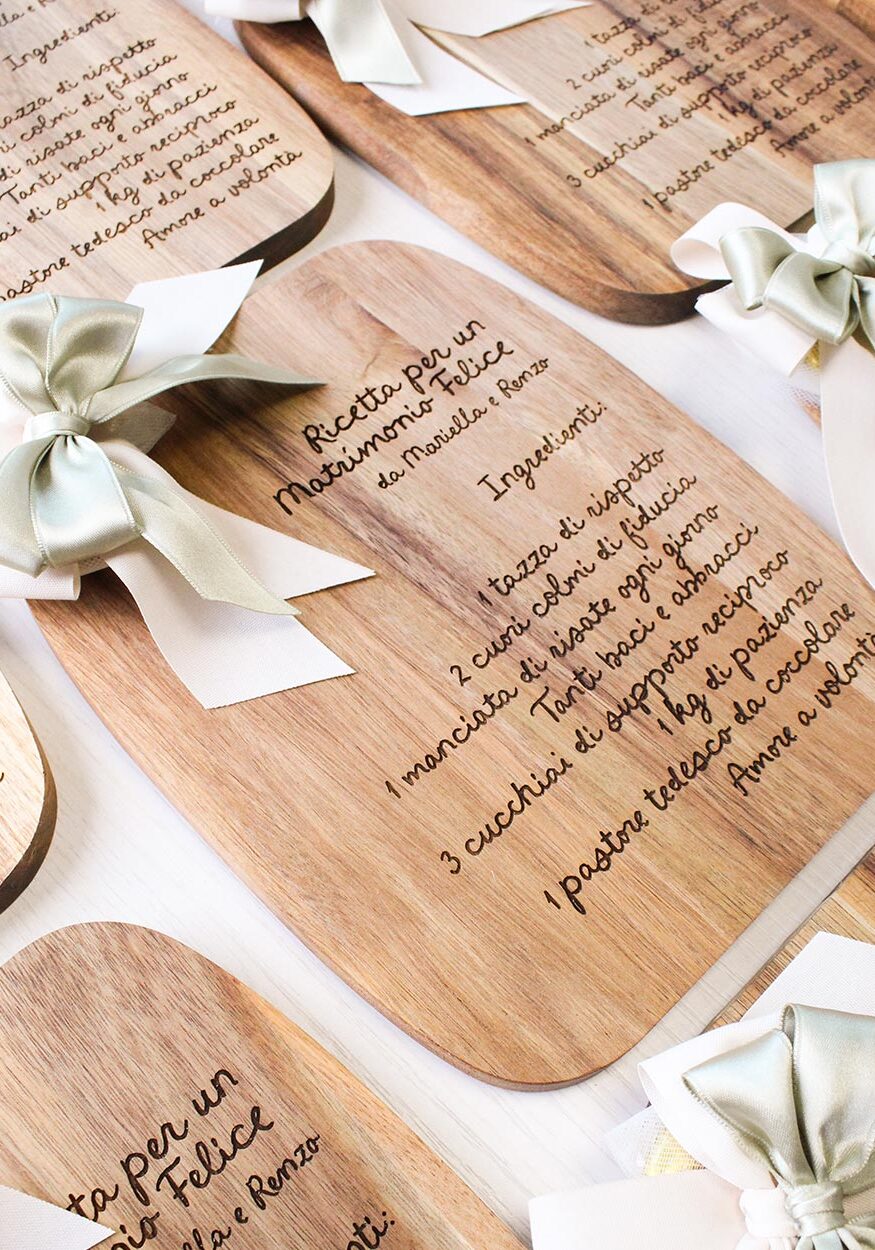 Ingredienti:
tazza di rispetto
colmi di fiducia
di risate ogni giorno
Tanti baci e abbracci
di supporto reciproco
1 kg di pazienza
pastore tedesco da coccolare
Amore a volontà
1 tazza di rispetto
2 cuori colmi di fiducia
1 manciata di risate ogni giorno
Tanti baci e abbracci
3 cucchiai di supporto reciproco
1 kg di pazienza
1 pastore tedesco da coccolare
Amore a volont
Ricetta per un
Matrimonio Felice
da Mariella e Renzo
Ingredienti:
1 tazza di rispetto
2 cuori colmi di fiducia
1 manciata di risate ogni giorno
Tanti baci e abbracci
3 cucchiai di supporto reciproco
1 kg di pazienza
1 pastore tedesco da coccolare
Amore a volontà
tta per un
nio Felice
lla e Renzo
ti: